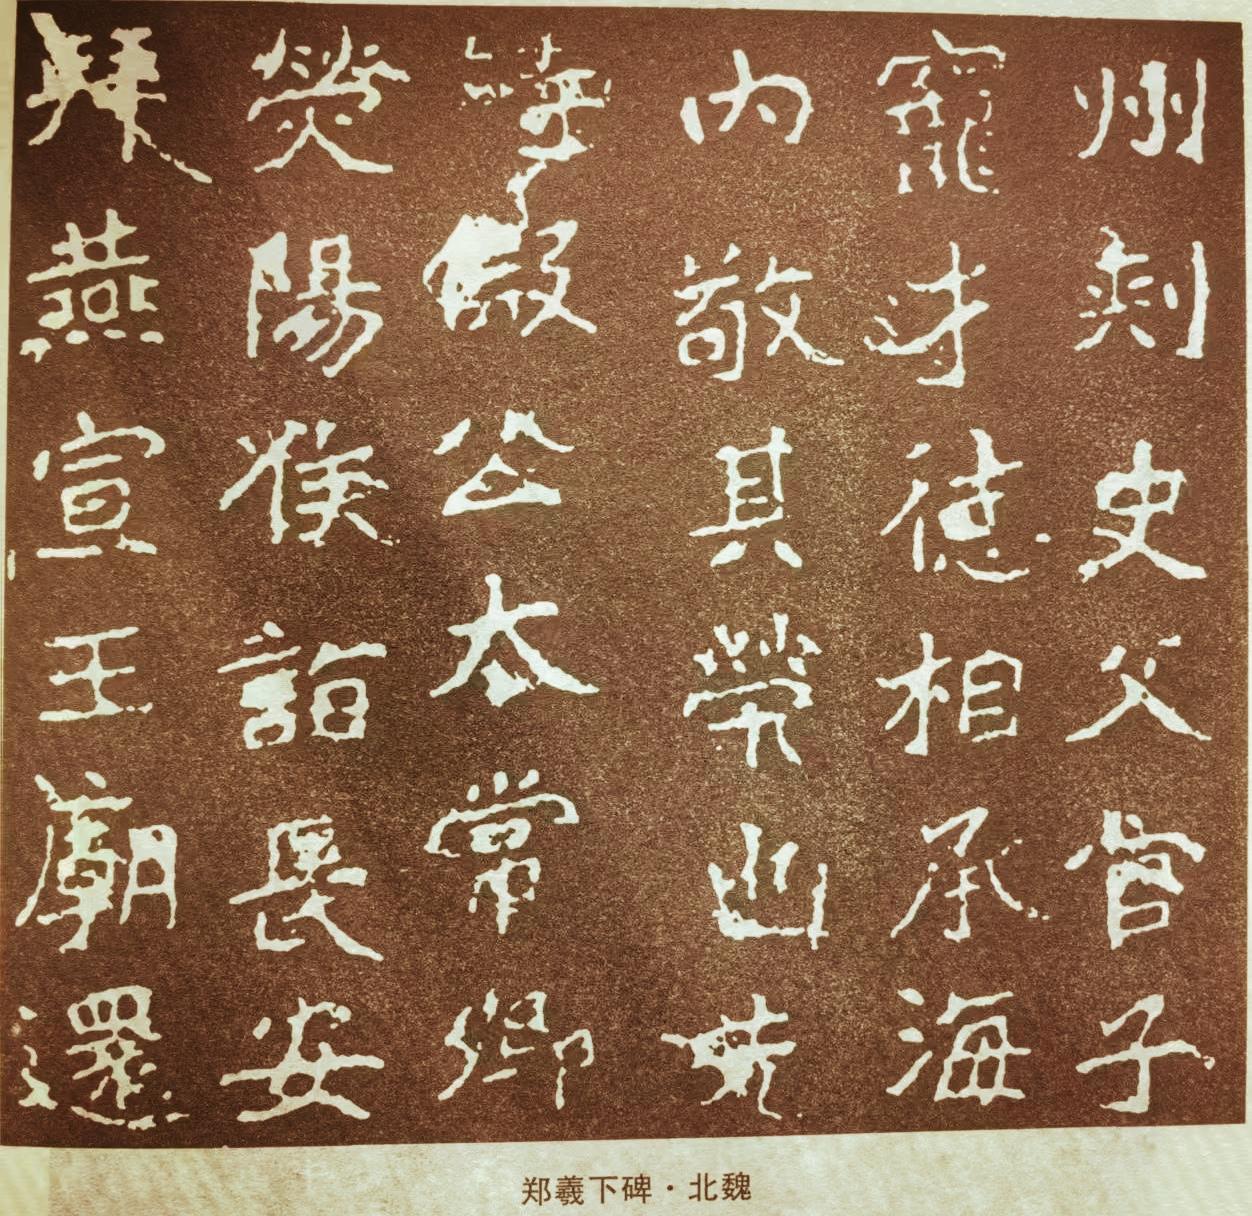 州刺史父官子
寵才德相承海
内敬其榮也先
時假公太常卿
熒陽侯詣長安
拜燕宣王廟還
郑羲下碑·北魏